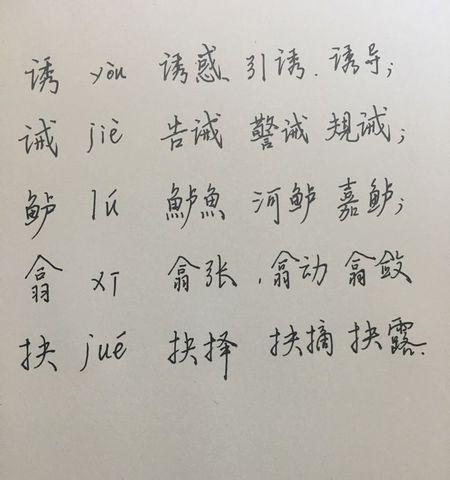 诱 yòu 诱惑 引诱. 诱导;
诫 jiè 告诫 警诫 規诫;
鲈 lú 鲈魚 河鲈 嘉鲈;
翕 xī 翕张 . 翕动 翕敛
抉 jué 抉择 抉摘 抉露.